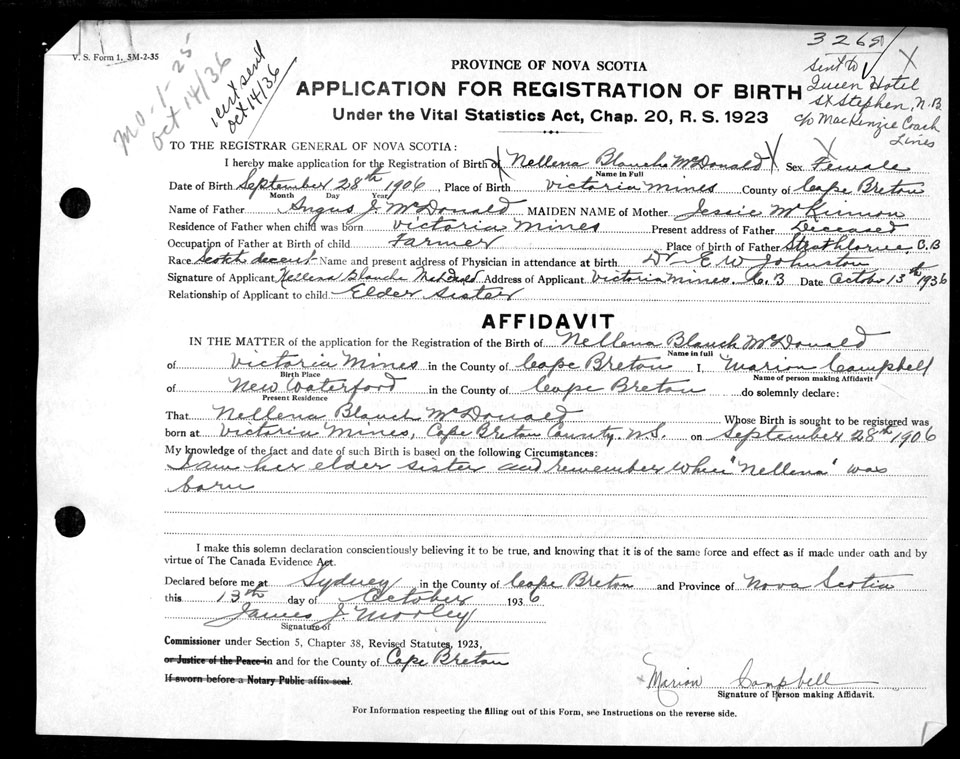 V. S. Form 1. 5M-2-35
MO-1-25
Oct 14/36
1 cert sent
Oct 14/36
3268
sent to
Queen Hotel
St Stephen, N.B
c/o MacKenzie Coach
Lines
PROVINCE OF NOVA SCOTIA
APPLICATION FOR REGISTRATION OF BIRTH
Under the Vital Statistics Act, Chap. 20, R. S. 1923
TO THE REGISTRAR GENERAL OF NOVA SCOTIA:
I hereby make application for the Registration of Birth of Nellena Blanch McDonald Sex Female
Name in Full
Date of Birth September 28th 1906 Place of Birth Victoria Mines County of Cape Breton
Month Day Year
Name of Father Angus J. McDonald MAIDEN NAME of Mother Jessie McKinnon
Residence of Father when child was born Victoria Mines Present address of Father Deceased
Occupation of Father at Birth of child Farmer Place of birth of Father Strathlorne, C.B
Race Scotch decent Name and present address of Physician in attendance at birth Dr E W Johnston
Signature of Applicant Nellena Blanche McDonald Address of Applicant Victoria Mines, C. B Date Octobr 13th 1936
Relationship of Applicant to child Elder Sister
AFFIDAVIT
IN THE MATTER of the application for the Registration of the Birth of Nellena Blanch McDonald
Name in full
of Victoria Mines in the County of Cape Breton I, Marion Campbell
Birth Place Name of person making Affidavit
of New Waterford in the County of Cape Breton do solemnly declare:
Present Residence
That Nellena Blanch McDonald Whose Birth is sought to be registered was
born at Victoria Mines, Cape Breton County, N.S. on September 28th 1906
My knowledge of the fact and date of such Birth is based on the following Circumstances:
I am her elder sister and remember when "Nellena" was
born
I make this solemn declaration conscientiously believing it to be true, and knowing that it is of the same force and effect as if made under oath and by
virtue of The Canada Evidence Act.
Declared before me at Sydney in the County of Cape Breton and Province of Nova Scotia
this 13th day of October 1936
James J. Morley
Signature of
Commissioner under Section 5, Chapter 38, Revised Statutes, 1923,
or Justice of the Peace in and for the County of Cape Breton
If sworn before a Notary Public affix seal.
x Marion Campbell
Signature of Person making Affidavit.
For Information respecting the filling out of this Form, see Instructions on the reverse side.